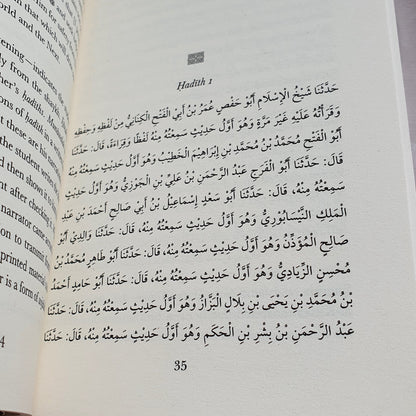 n that which
orld and the Next.
ening—indicate the
her's ḥadīth, Mu
ons of ḥadīth in a
t these are his nar
the student writes
d then shows it to
nt after checking
narrator came
on to transmit
printed materi
r is a form of
4
Ḥadīth 1
حَدَّثَنَا شَيْخُ الْإِسْلَامِ أَبُو حَفْصٍ عُمَرُ بْنُ أَبِي الْفَتْحِ الْكِنَانِيُّ مِنْ لَفْظِهِ وَحِفْظِهِ
وَقَرَأْتُهُ عَلَيْهِ غَيْرَ مَرَّةٍ وَهُوَ أَوَّلُ حَدِيثٍ سَمِعْتُهُ مِنْهُ لَفْظًا وَقِرَاءَةً، قَالَ: حَدَّثَنَا
أَبُو الْفَتْحِ مُحَمَّدُ بْنُ مُحَمَّدِ بْنِ إِبْرَاهِيمَ الْخَطِيبُ وَهُوَ أَوَّلُ حَدِيثٍ سَمِعْتُهُ مِنْهُ
قَالَ: حَدَّثَنَا أَبُو الْفَرَجِ عَبْدُ الرَّحْمَنِ بْنُ عَلِيِّ بْنِ الْجَوْزِيِّ وَهُوَ أَوَّلُ حَدِيثٍ
سَمِعْتُهُ مِنْهُ، قَالَ: حَدَّثَنَا أَبُو سَعْدٍ إِسْمَاعِيلُ بْنُ أَبِي صَالِحٍ أَحْمَدَ بْنِ عَبْدِ
الْمَلِكِ النَّيْسَابُورِيُّ وَهُوَ أَوَّلُ حَدِيثٍ سَمِعْتُهُ مِنْهُ، قَالَ: حَدَّثَنَا وَالِدِي أَبُو
صَالِحٍ الْمُؤَذِّنُ وَهُوَ أَوَّلُ حَدِيثٍ سَمِعْتُهُ مِنْهُ، قَالَ: حَدَّثَنَا أَبُو طَاهِرٍ مُحَمَّدُ بْنُ
مُحْسِنٍ الزِّيَادِيُّ وَهُوَ أَوَّلُ حَدِيثٍ سَمِعْتُهُ مِنْهُ، قَالَ: حَدَّثَنَا أَبُو حَامِدٍ أَحْمَدُ
بْنُ مُحَمَّدِ بْنِ يَحْيَى بْنِ بِلَالٍ الْبَزَّازُ وَهُوَ أَوَّلُ حَدِيثٍ سَمِعْتُهُ مِنْهُ، قَالَ: حَدَّثَنَا
عَبْدُ الرَّحْمَنِ بْنُ بِشْرِ بْنِ الْحَكَمِ وَهُوَ أَوَّلُ حَدِيثٍ سَمِعْتُهُ مِنْهُ، قَالَ: حَدَّثَنَا
35